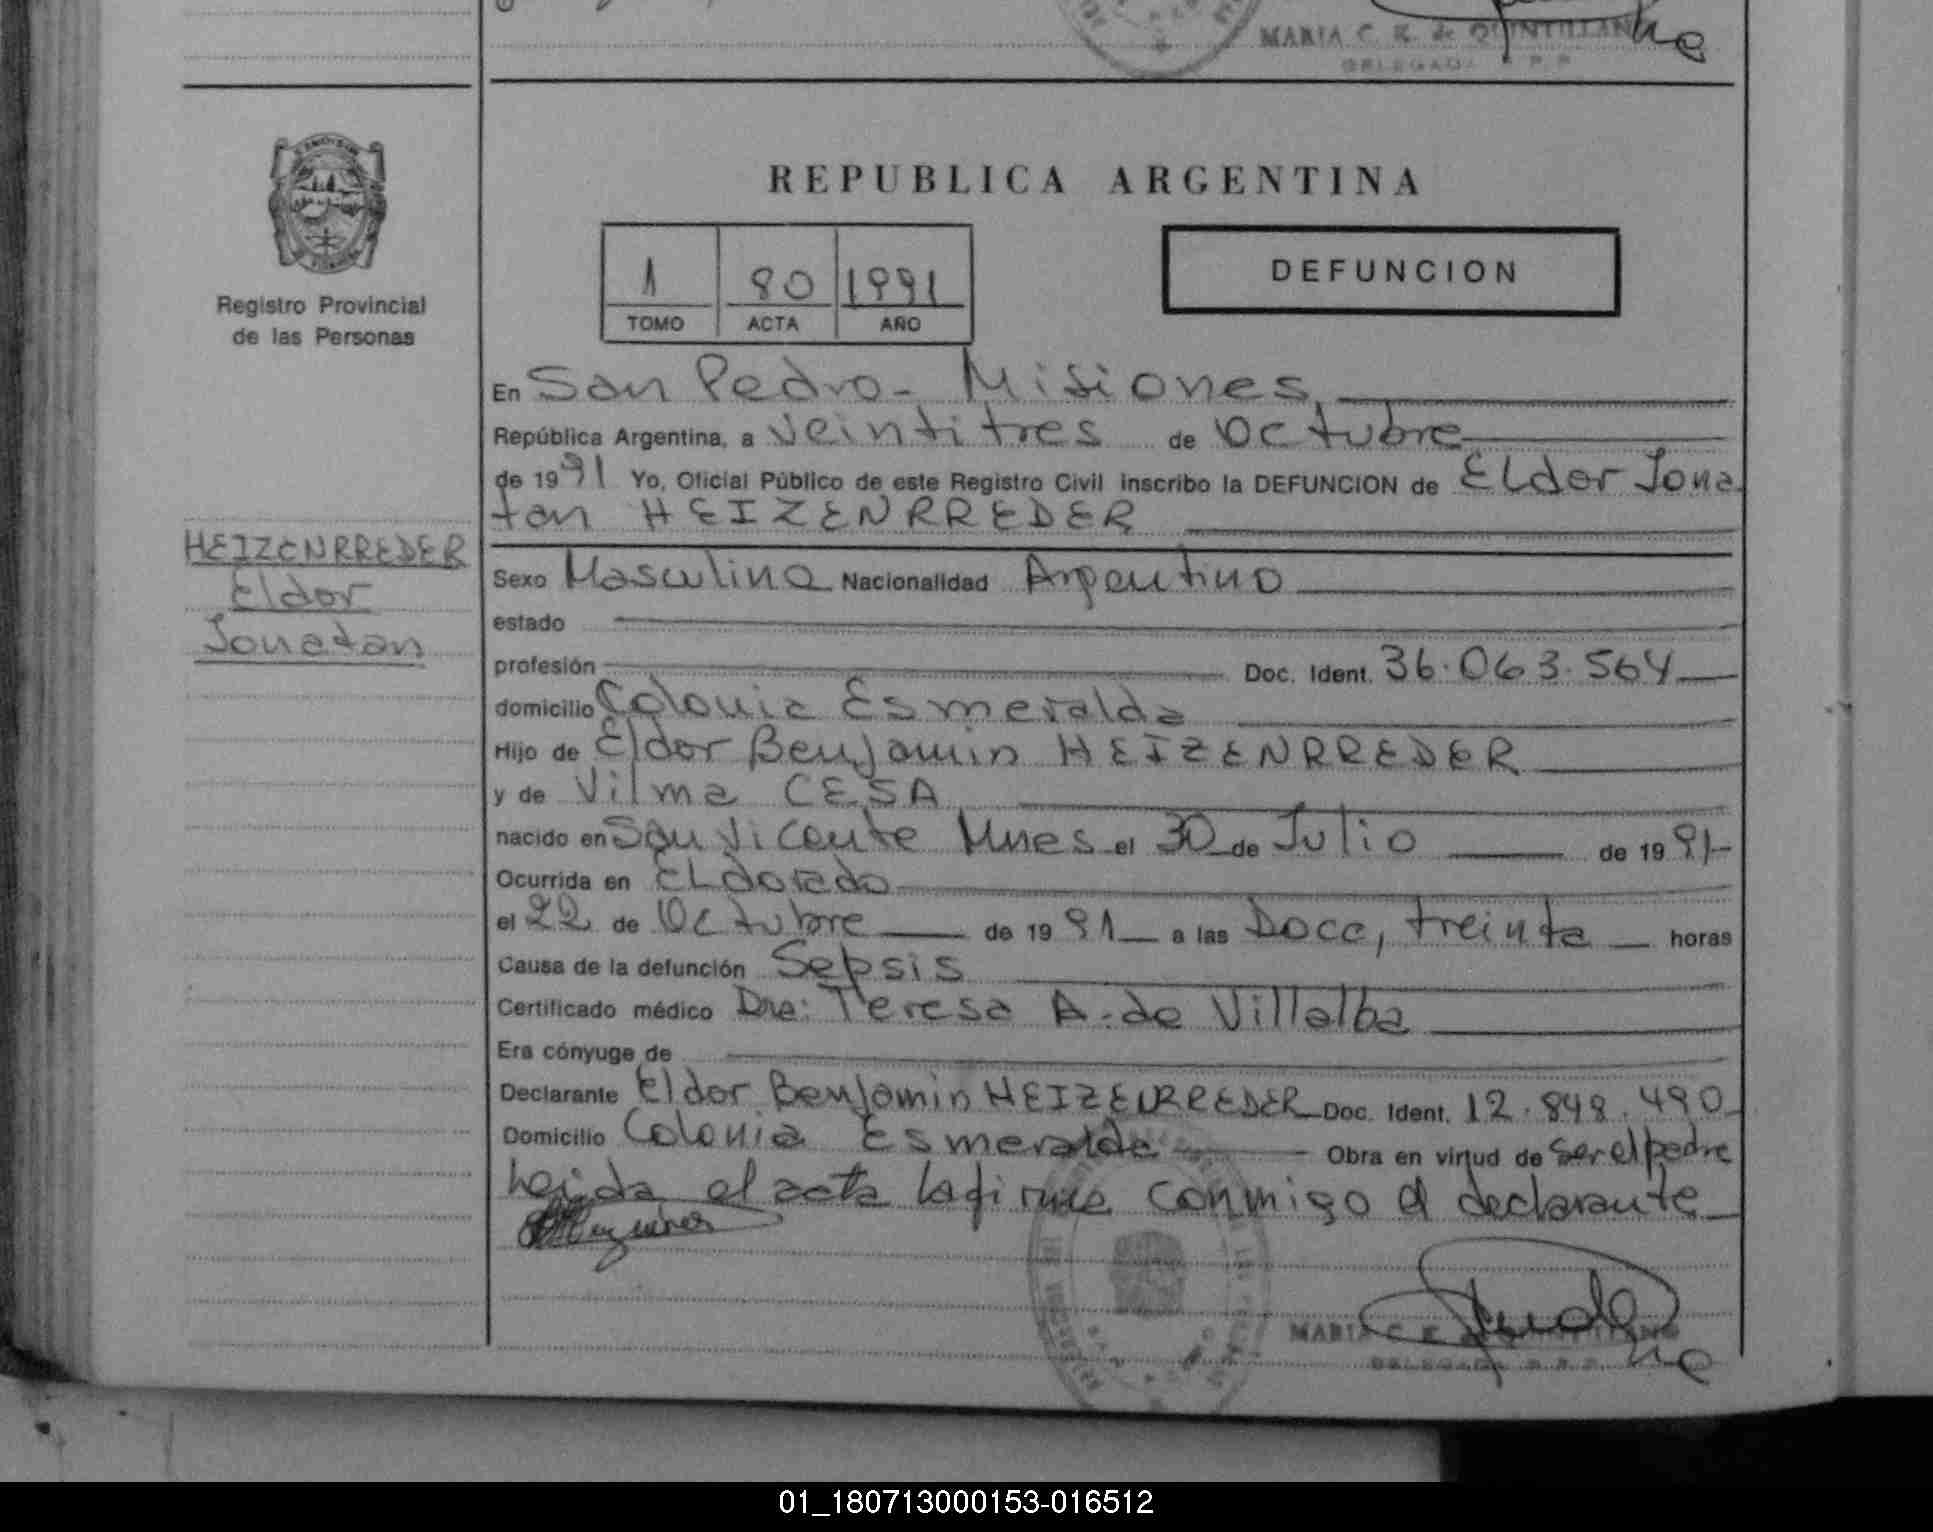 MARIA C. E. de QUINTILLAN
DELEGADA R.P.P.
REPUBLICA ARGENTINA
Registro Provincial
de las Personas
1 80 1991
TOMO ACTA AÑO
DEFUNCION
En San Pedro - Misiones
República Argentina, a veintitres de Octubre
de 1991 Yo, Oficial Público de este Registro Civil inscribo la DEFUNCION de Eldor Jona
tan HEIZENRREDER
HEIZENRREDER
Eldor
Jonatan
Sexo Masculino Nacionalidad Argentino
estado
profesión Doc. Ident. 36.063.564
domicilio Colonia Esmeralda
Hijo de Eldor Benjamin HEIZENRREDER
y de Vilma CESA
nacido en San Vicente Mnes el 30 de Julio de 1991
Ocurrida en ELdorado
el 22 de Octubre de 1991 a las Doce, treinta horas
Causa de la defunción Sepsis
Certificado médico Dra: Teresa A. de Villalba
Era cónyuge de
Declarante Eldor Benjamin HEIZENRREDER Doc. Ident. 12.848.490
Domicilio Colonia Esmeralda Obra en virtud de ser el padre
Leida el acta la firma conmigo el declarante
MARIA C. E. de QUINTILLANO
DELEGADA R.P.P.
01_180713000153-016512